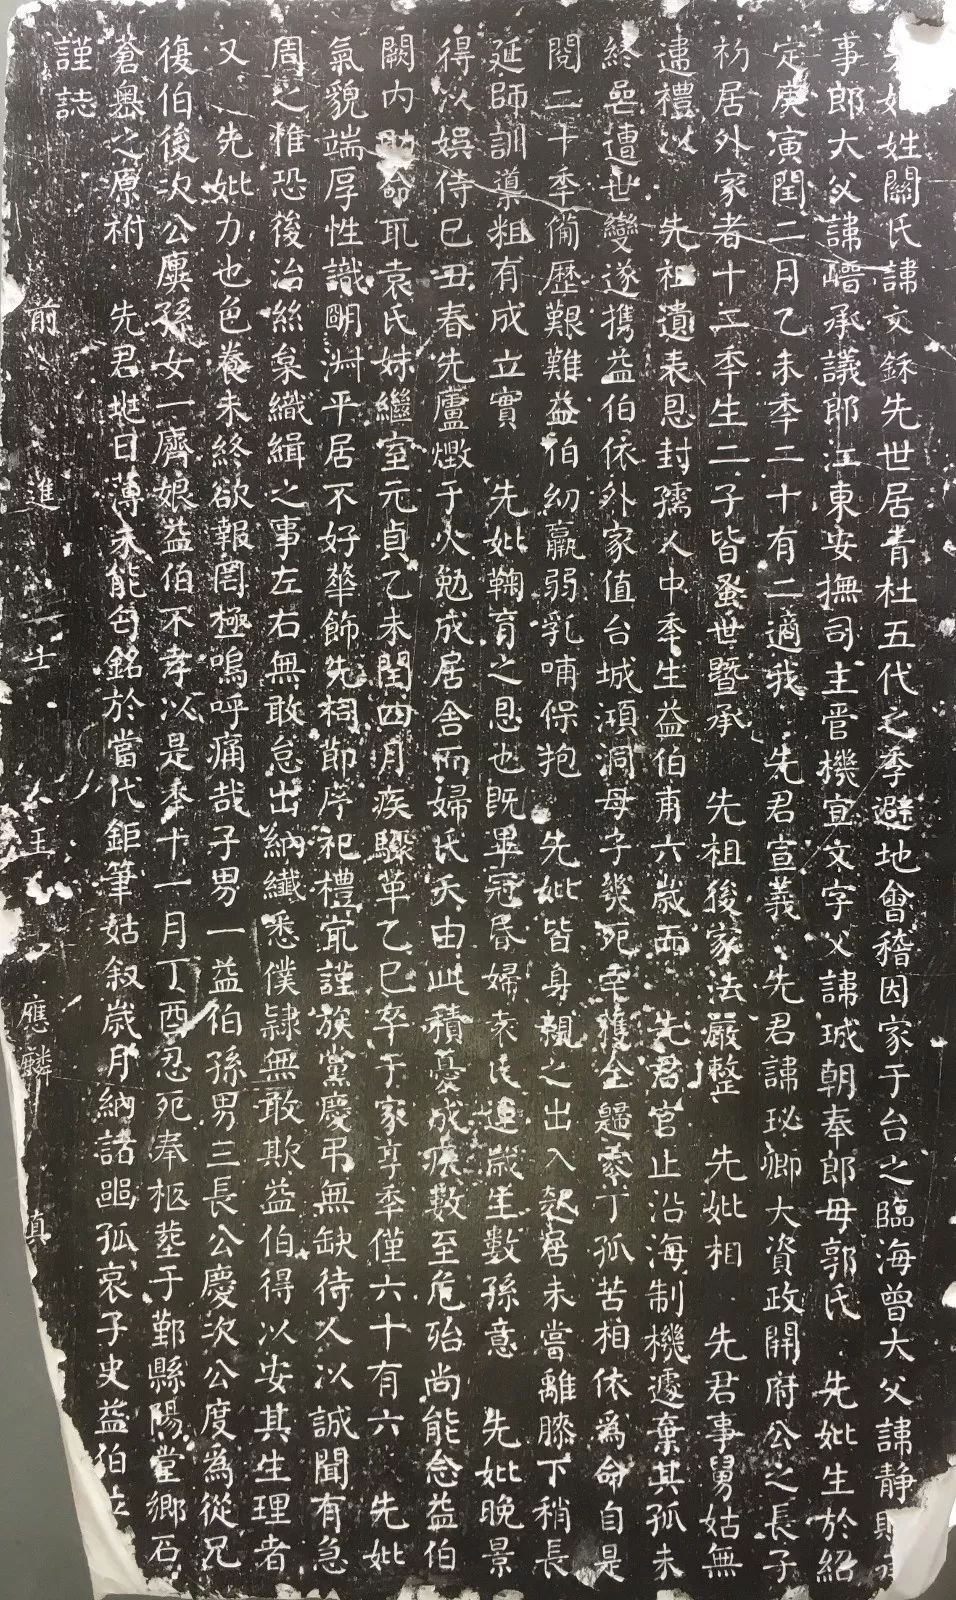 先妣姓關氏諱文鉌先世居青杜五代之季避地會稽因家于台之臨海曾大父諱靜贈承
事郎大父諱嶒承議郎江東安撫司主管機宜文字父諱珹朝奉郎母郭氏 先妣生於紹
定庚寅閏二月乙未年二十有二適我 先君宣義 先君諱珌卿大資政開府公之長子
初居外家者十二年生二子皆蚤世暨承 先祖後家法嚴整 先妣相 先君事舅姑無
違禮以 先祖遺表恩封孺人中年生益伯甫六歲而 先君官止沿海制機遽棄其孤未
終喪遭世變遂攜益伯依外家值台城澒洞母子幾死幸獲全歸零丁孤苦相依爲命自是
閱二十年備歷艱難益伯幼羸弱乳哺保抱 先妣皆身親之出入起居未嘗離膝下稍長
延師訓導粗有成立實 先妣鞠育之恩也既畢冠昏婦袁氏連歲生數孫意 先妣晚景
得以娛侍己丑春先廬燬于火勉成居舍而婦氏夭由此積憂成疾數至危殆尚能念益伯
闕內助命取袁氏妹繼室元貞乙未閏四月疾驟革乙巳卒于家享年僅六十有六 先妣
氣貌端厚性識明淑平居不好華飾先祠節序祀禮寅謹族黨慶弔無缺待人以誠聞有急
周之惟恐後治絲枲織緝之事左右無敢怠出納纖悉僕隸無敢欺益伯得以安其生理者
又 先妣力也色養未終欲報罔極嗚呼痛哉子男一益伯孫男三長公慶次公度爲從兄
復伯後次公廙孫女一膺娘益伯不孝以是年十一月丁酉忍死奉柩葬于鄞縣陽堂鄉石
蒼奧之原祔 先君 兆日薄未能匄銘於當代鉅筆姑叙歲月納諸幽孤哀子史益伯泣
謹誌
前進士王應麟填